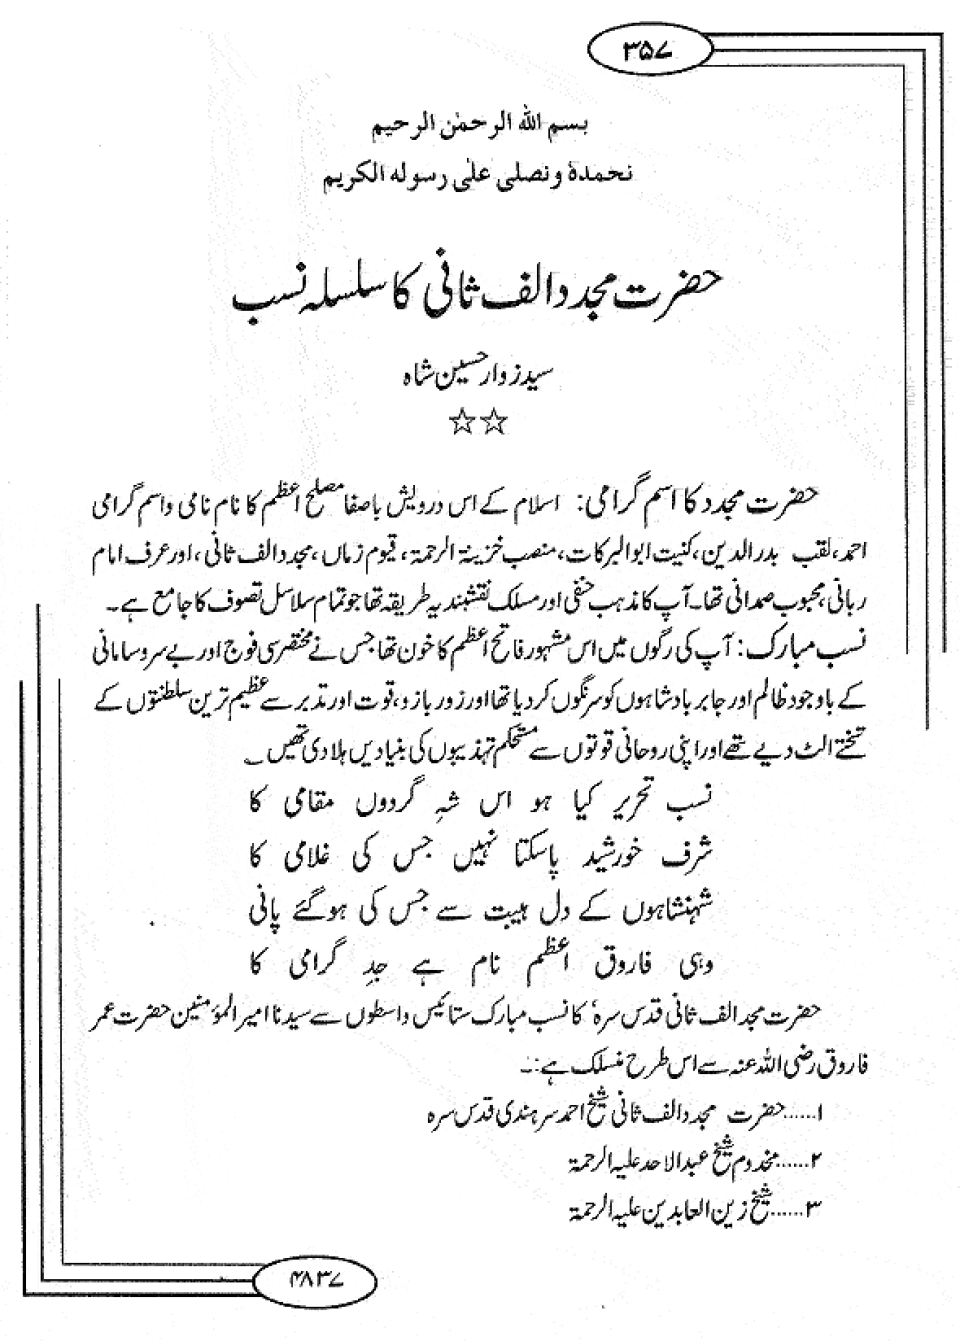 ۳۵۷
بسم الله الرحمٰن الرحیم
نحمدهٗ ونصلی علٰی رسوله الکریم
حضرت مجدد الف ثانی کا سلسلہ نسب
سید زوار حسین شاہ
☆☆
حضرت مجدد کا اسم گرامی: اسلام کے اس درویش باصفا مصلح اعظم کا نام نامی واسم گرامی
احمد، لقب بدر الدین، کنیت ابو البرکات، منصب خزینۃ الرحمۃ، قیوم زماں، مجدد الف ثانی، اور عرف امام
ربانی، محبوب صمدانی تھا۔ آپ کا مذہب حنفی اور مسلک نقشبندیہ طریقہ تھا جو تمام سلاسل تصوف کا جامع ہے۔
نسب مبارک: آپ کی رگوں میں اس مشہور فاتح اعظم کا خون تھا جس نے مختصر سی فوج اور بے سروسامانی
کے باوجود ظالم اور جابر بادشاہوں کو سرنگوں کر دیا تھا اور زور بازو، قوت اور تدبر سے عظیم ترین سلطنتوں کے
تختے الٹ دیے تھے اور اپنی روحانی قوتوں سے مستحکم تہذیبوں کی بنیادیں ہلا دی تھیں۔
نسب تحریر کیا ہو اس شہِ گردوں مقامی کا
شرف خورشید پاسکتا نہیں جس کی غلامی کا
شہنشاہوں کے دل ہیبت سے جس کی ہوگئے پانی
وہی فاروق اعظم نام ہے جدِ گرامی کا
حضرت مجدد الف ثانی قدس سرہٗ کا نسب مبارک ستائیس واسطوں سے سیدنا امیر المؤمنین حضرت عمر
فاروق رضی اللہ عنہ سے اس طرح منسلک ہے:۔
۱......حضرت مجدد الف ثانی شیخ احمد سرہندی قدس سرہ
۲......مخدوم شیخ عبدالاحد علیہ الرحمۃ
۳......شیخ زین العابدین علیہ الرحمۃ
۴۸۳۷